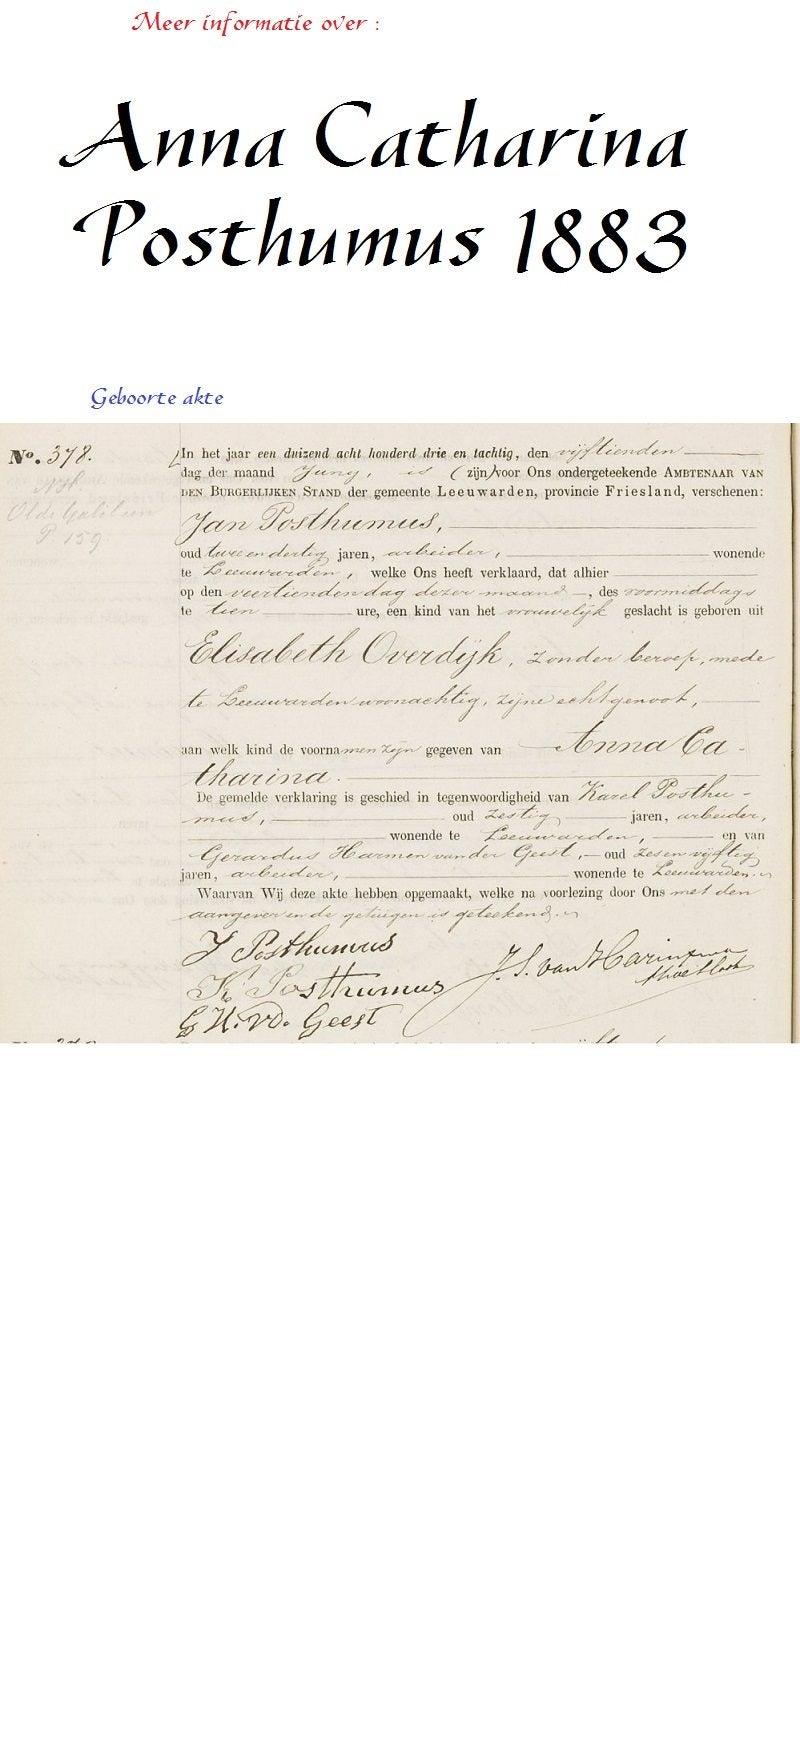 Meer informatie over :
Anna Catharina
Posthumus 1883
Geboorte akte
No. 378.
In het jaar een duizend acht honderd drie en tachtig, den vijftienden
dag der maand Juny, is (zijn) voor Ons ondergeteekende AMBTENAAR VAN
DEN BURGERLIJKEN STAND der gemeente Leeuwarden, provincie Friesland, verschenen:
Jan Posthumus,
oud twee en dertig jaren, arbeider, wonende
te Leeuwarden, welke Ons heeft verklaard, dat alhier
op den veertienden dag dezer maand, des voormiddags
te tien ure, een kind van het vrouwelijk geslacht is geboren uit
Elisabeth Overdijk, zonder beroep, mede
te Leeuwarden woonachtig, zijne echtgenoot,
aan welk kind de voornamen zijn gegeven van Anna Ca-
tharina.
De gemelde verklaring is geschied in tegenwoordigheid van Karel Posthu-
mus, oud zestig jaren, arbeider,
wonende te Leeuwarden, en van
Gerardus Harmen van der Geest, oud zes en vijftig
jaren, arbeider, wonende te Leeuwarden.
Waarvan Wij deze akte hebben opgemaakt, welke na voorlezing door Ons met den
aangever en de getuigen is geteekend.
J Posthumus
K Posthumus
G H. vd. Geest
J. S. van Harinxma